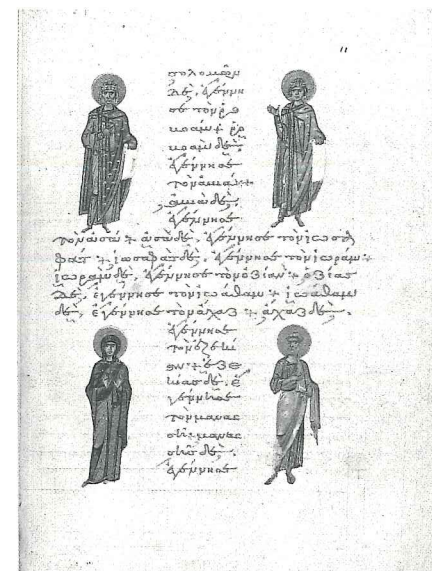 σολομὼν
δὲ, ἐγέννη
σε τὸν ῥο
βοάμ + ῥο
βοὰμ δὲ,
ἐγέννησε
τὸν ἀβιά +
ἀβιὰ δὲ,
ἐγέννησε
τὸν ἀσά + ἀσὰ δὲ, ἐγέννησε τὸν ἰωσα
φάτ + ἰωσαφὰτ δὲ, ἐγέννησε τὸν ἰωράμ +
ἰωρὰμ δὲ, ἐγέννησε τὸν ὀζίαν + ὀζίας
δὲ, ἐγέννησε τὸν ἰωάθαμ + ἰωάθαμ
δὲ, ἐγέννησε τὸν ἄχαζ + ἄχαζ δὲ,
ἐγέννησε
τὸν ἐζεκί
αν + ἐζε
κίας δὲ, ἐ
γέννησε
τὸν μανασ
σῆ + μανασ
σῆς δὲ,
ἐγέννησε